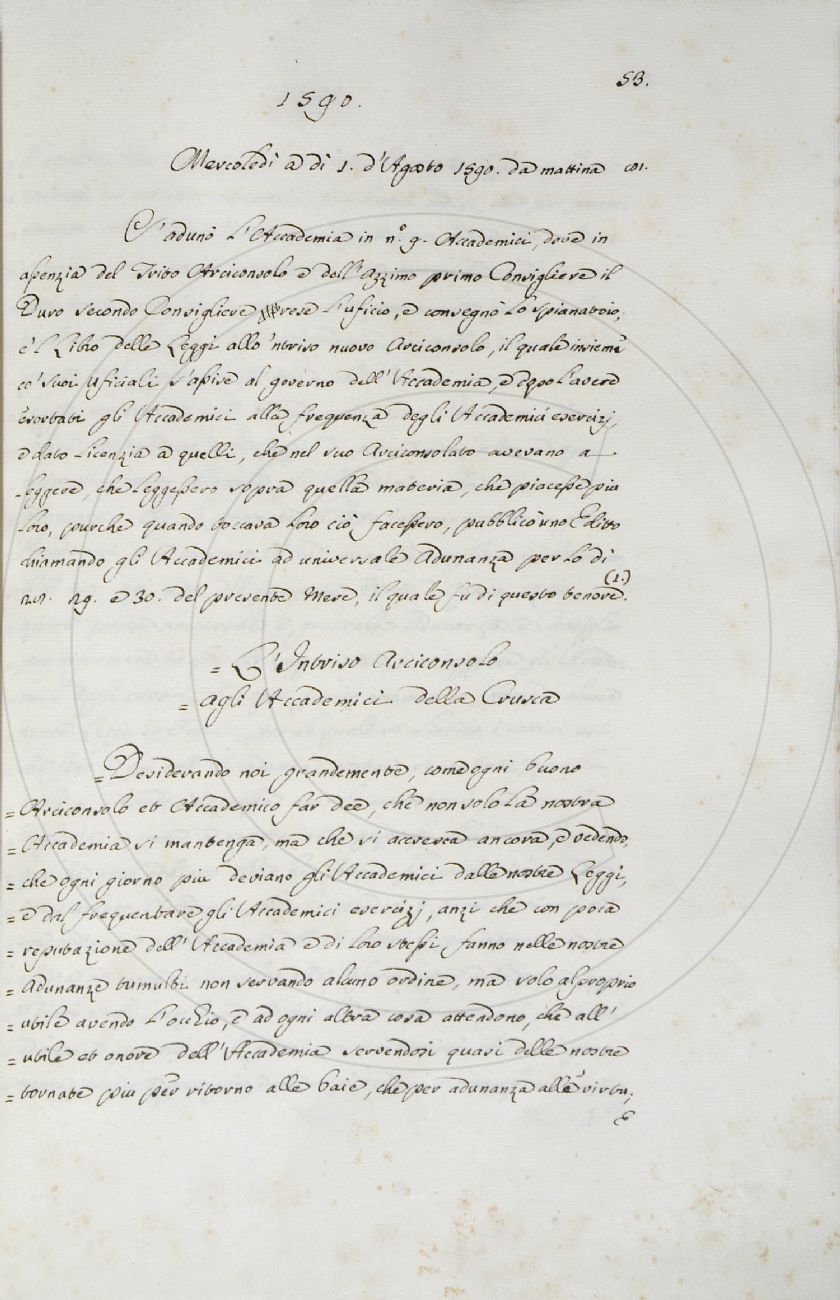 53.
1590.
Mercoledì a dì 1. d'Agosto 1590. da mattina
S'adunò l'Accademia in n.º 9. Accademici, dove in
assenzia del Trito Arciconsolo e dell'Azzimo primo Consigliere il
Duro secondo Consigliere rese l'uficio, e consegnò lo spianatoio,
e 'l Libro delle Leggi allo 'ntriso nuovo Arciconsolo, il quale insieme
co' suoi uficiali s'assise al governo dell'Accademia, e dopo l'avere
esortati gli Accademici alla frequenza degli Accademici esercizj,
e dato licenzia a quelli, che nel suo Arciconsolato avevano a
leggere, che leggessero sopra quella materia, che piacesse più
loro, purche quando toccava loro ciò facessero, pubblicò uno Editto
chiamando gli Accademici ad universale Adunanza per lo di
29. e 30. del presente Mese, il quale fù di questo tenore. (1.)
= L'Intriso Arciconsolo
= agli Accademici della Crusca
= Desiderando noi grandemente, come ogni buono
= Arciconsolo et Accademico far dee, che non solo la nostra
= Accademia si mantenga, ma che si accresca ancora, e vedendo,
= che ogni giorno più deviano gli Accademici dalle nostre Leggi,
= e dal frequentare gli Accademici esercizj, anzi che con poca
= reputazione dell'Accademia e di loro stessi, fanno nelle nostre
= Adunanze tumulti non servando alcuno ordine, ma solo al proprio
= utile avendo l'occhio, e ad ogni altra cosa attendono, che all'
= utile et onore dell'Accademia servendosi quasi delle nostre
= tornate più per ritorno alle baie, che per adunanza alle virtu;
e